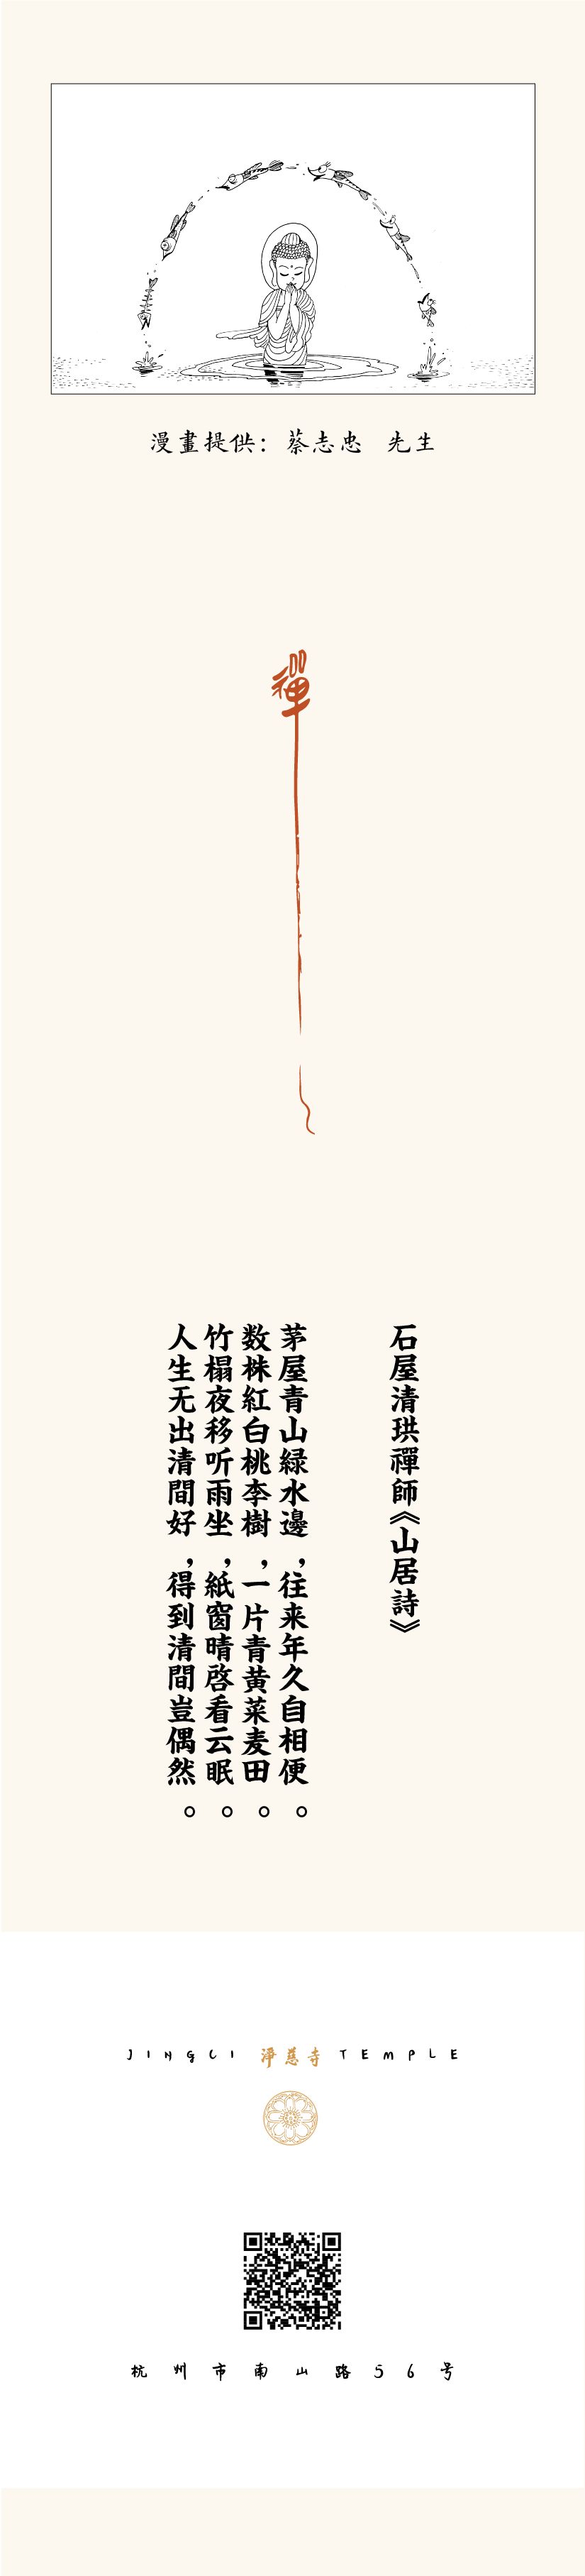 漫畫提供：蔡志忠 先生
禪
石屋清珙禪師《山居詩》
茅屋青山緑水邊，往来年久自相便。
数株紅白桃李樹，一片青黄菜麦田。
竹榻夜移听雨坐，紙窗晴啓看云眠。
人生无出清間好，得到清間豈偶然。
JINGCI 淨慈寺 TEMPLE
杭州市南山路56号